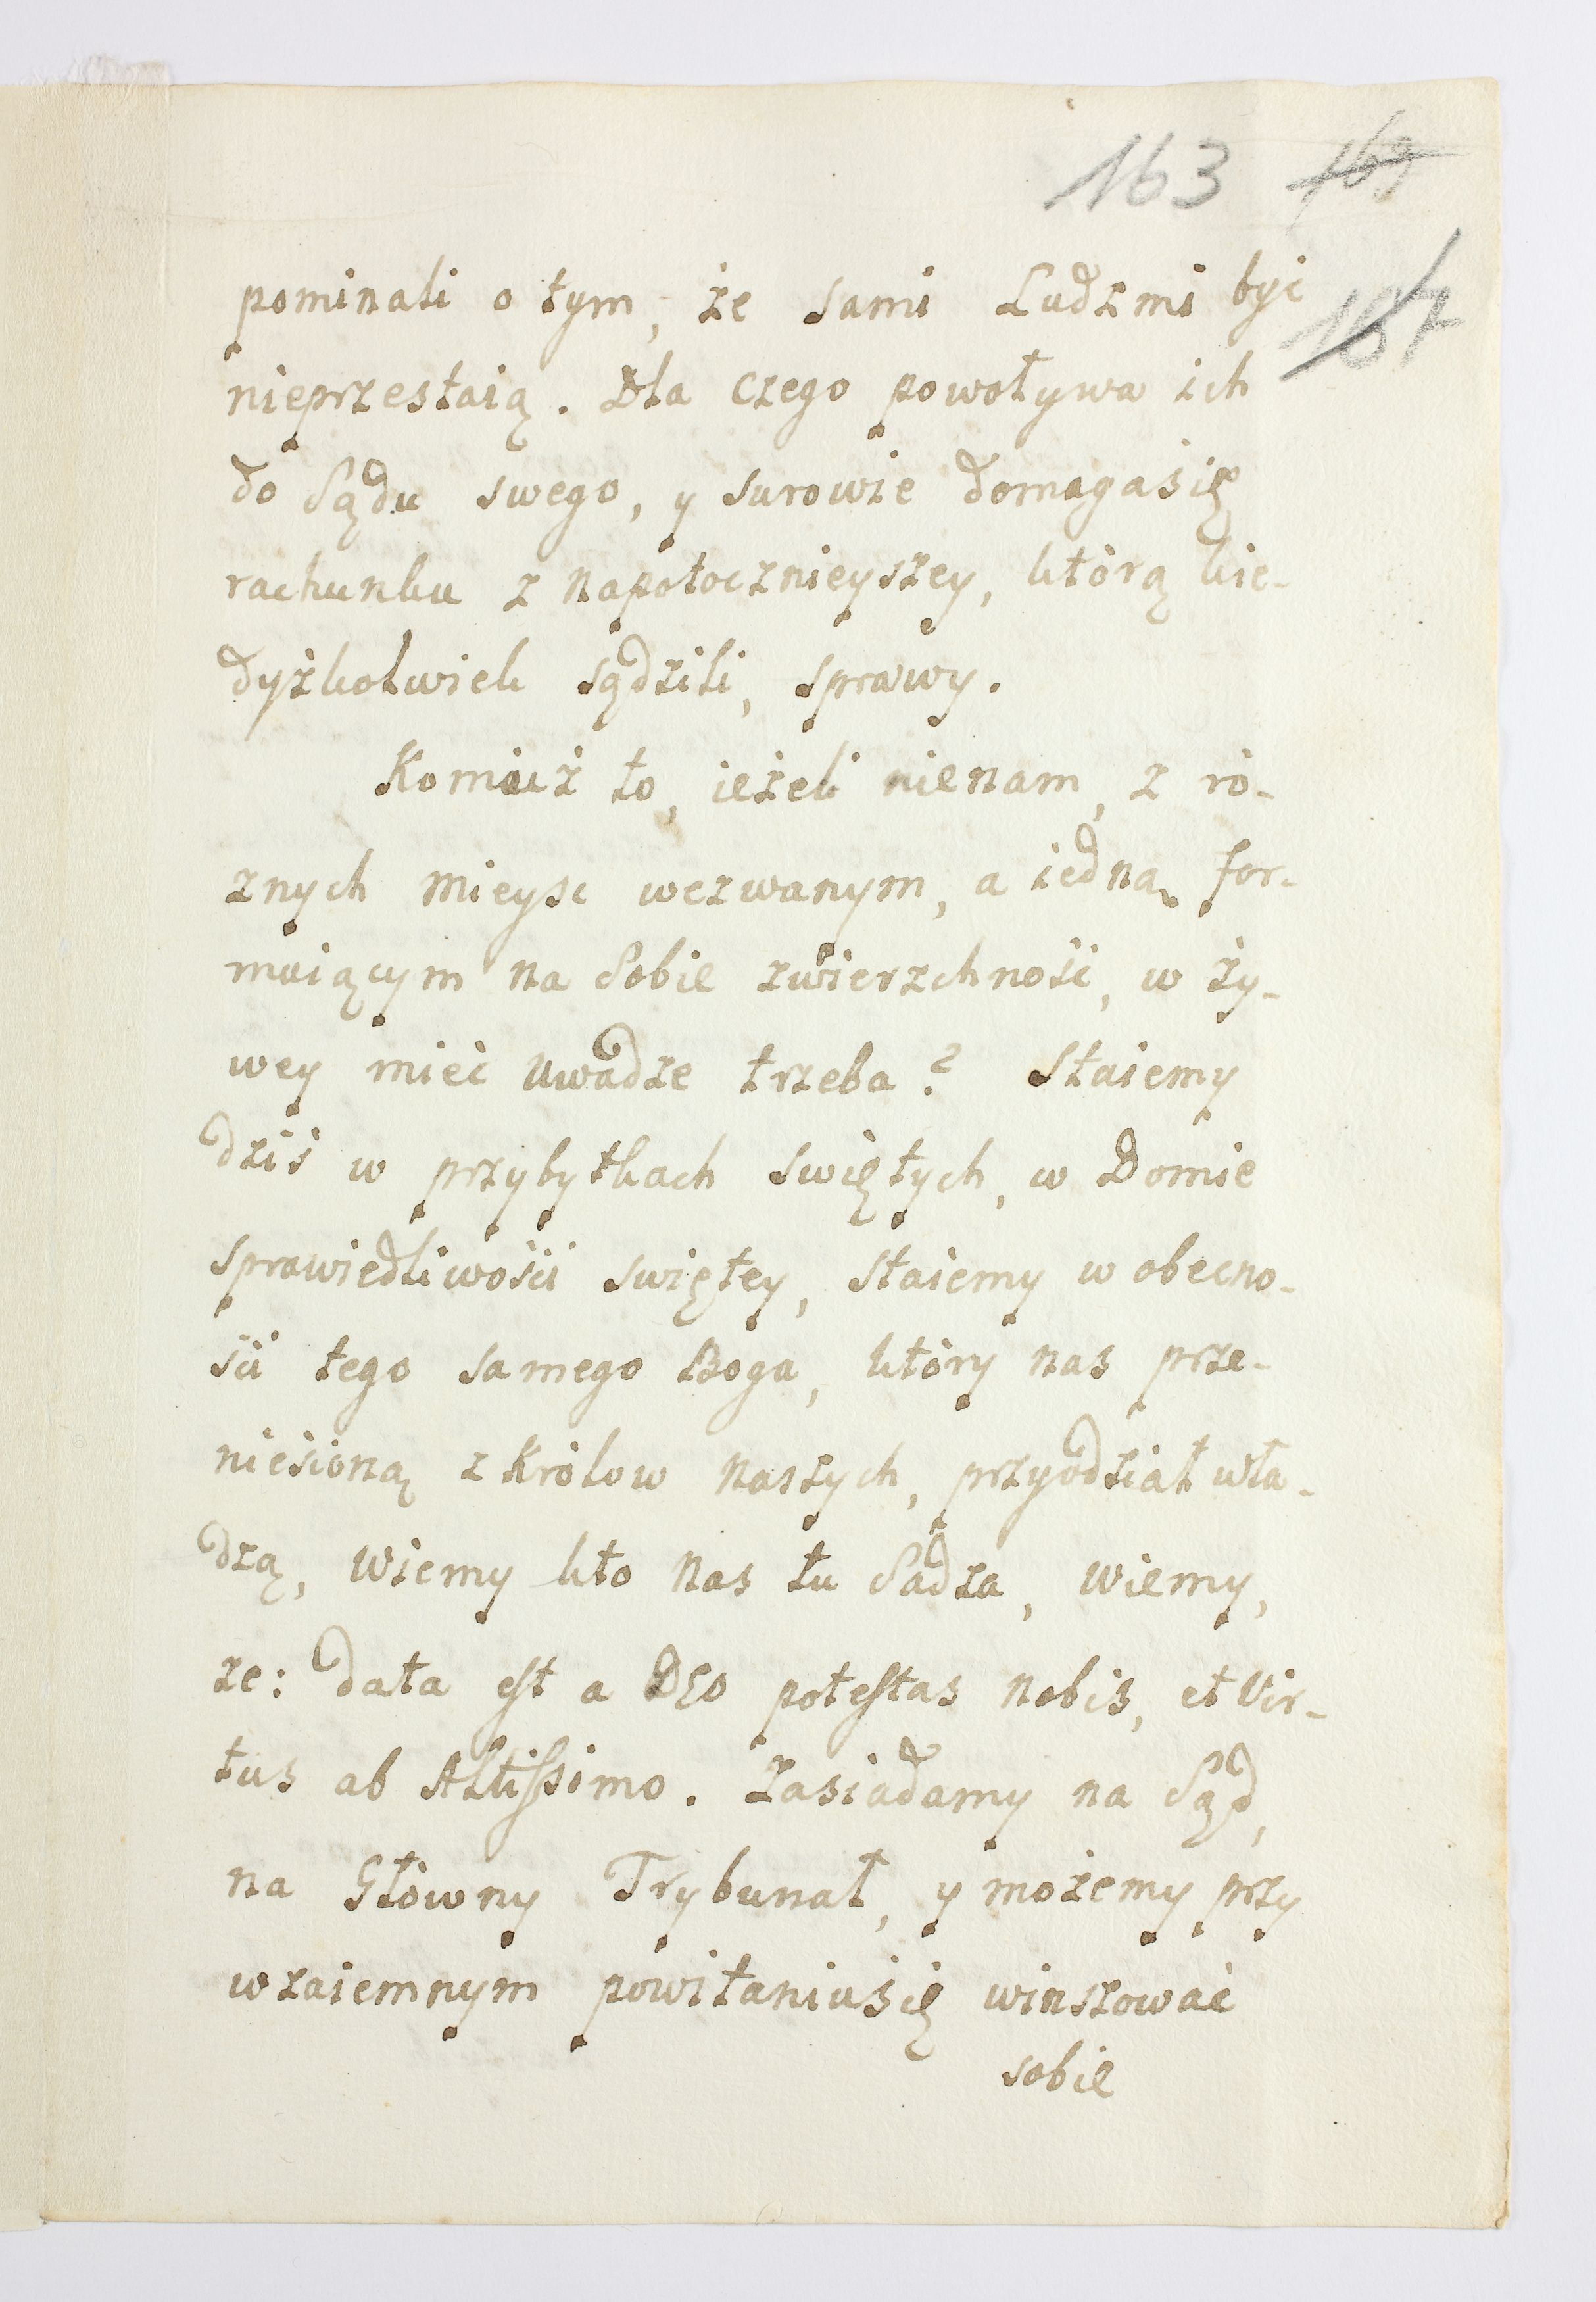 163
pominali o tym, że sami Ludzmi byc
nieprzestaią. Dla czego powoływa ich
do Sądu swego, y surowie domagasię
rachunku z napotocznieyszey, którą kie-
dyżkolwiek sądzili, sprawy.
Komuż to, ieżeli nienam, z ró-
znych mieysc wezwanym, a iedną for-
muiącym na Sobie zwierzchność, w ży-
wey mieć uwadze trzeba? Staiemy
dziś w przybytkach swiętych, w Domie
sprawiedliwości swiętey, staiemy w obecno-
ści tego samego Boga, który nas prze-
niesioną z Królow naszych, przyodział wła-
dzą, wiemy kto nas tu Sadza, wiemy,
ze: data est a DEO potestas nobis, et Vir-
tus ab Altissimo. Zasiadamy na Sąd,
na Główny Trybunał, y możemy przy
wzaiemnym powitaniusię winszować
sobie